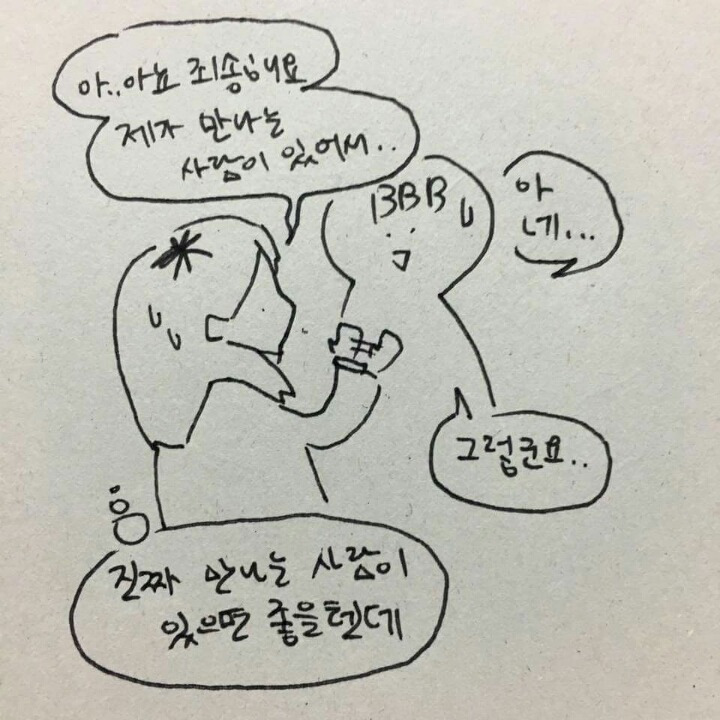 아..아뇨 죄송합니다
제가 만나는
사람이 있어서..
BBB
아
네...
그렇군요..
진짜 만나는 사람이
있으면 좋을텐데